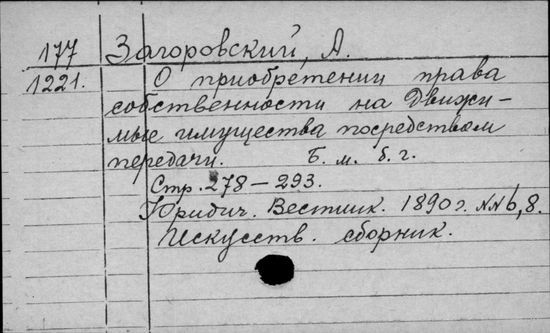 177 Загоровский, А.
1221. О приобретении права
собственности на движи-
мые имущества посредством
передачи. Б. м. б. г.
Стр. 278 – 293.
Юридич. Вестник. 1890 г. NN 6, 8.
Искусств. сборник.